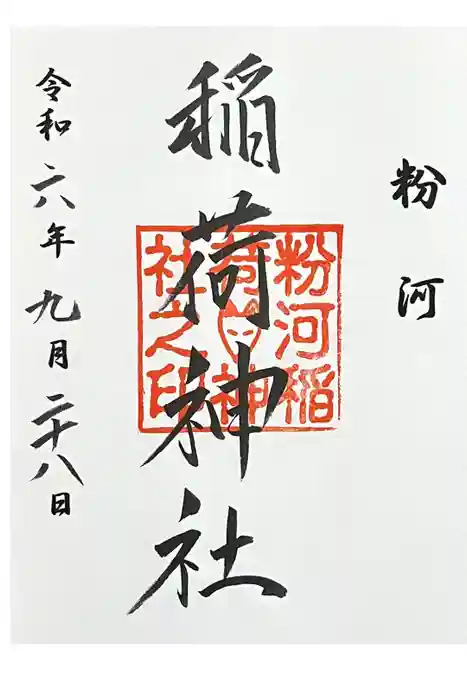 粉河
稲荷神社
令和六年九月二十八日
粉河稲
荷神
社之印